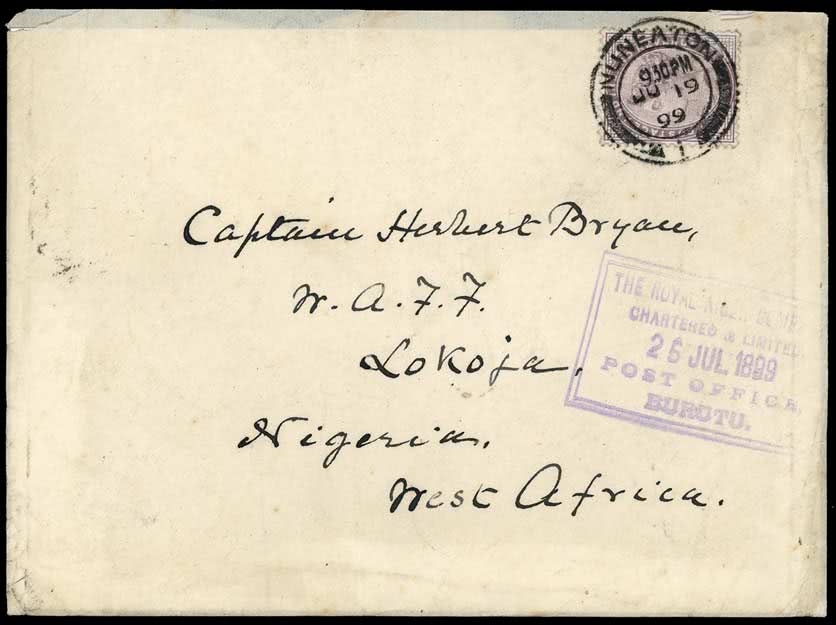 NUNEATON
930PM
JU 19
99
Captain Herbert Bryan,
W. A. F. F.
Lokoja,
Nigeria,
West Africa.
THE ROYAL NIGER COMP
CHARTERED & LIMITED
26 JUL 1899
POST OFFICE,
BURUTU.